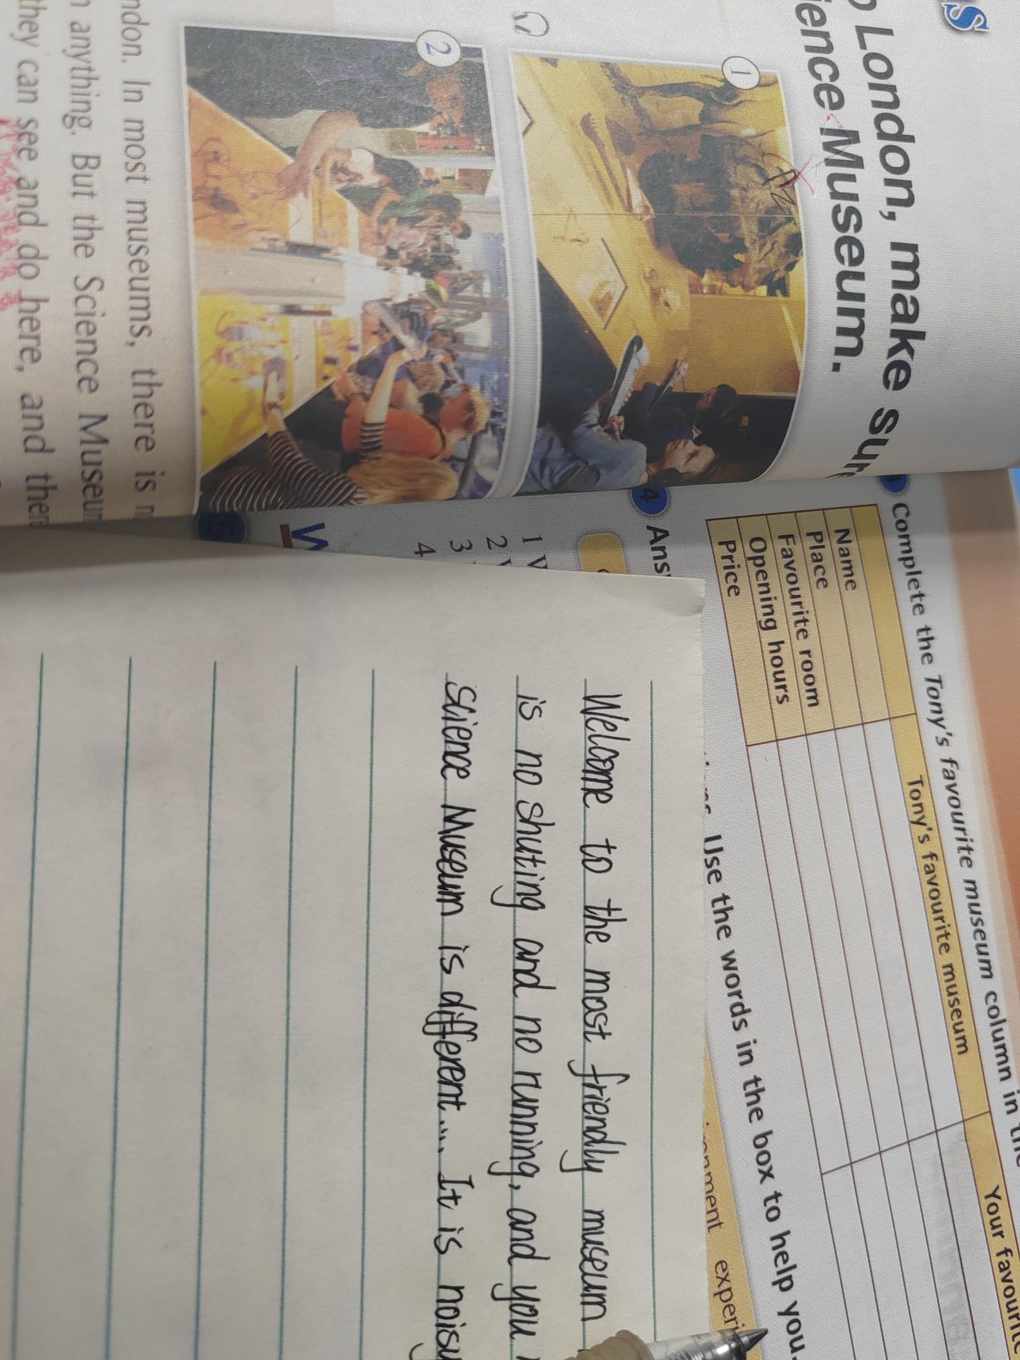 London, make
Museum.
1
2
In most museums, there is
anything. But the Science
they can see and do here, and
4
Complete the Tony's favourite museum column in
Tony's favourite museum
Your
Name
Place
Favourite room
Opening hours
Price
Use the words in the box to help you.
1
2
3
4
Welcome to the most friendly museum
is no shuting and no running, and you
Science Museum is different.... It is noisy